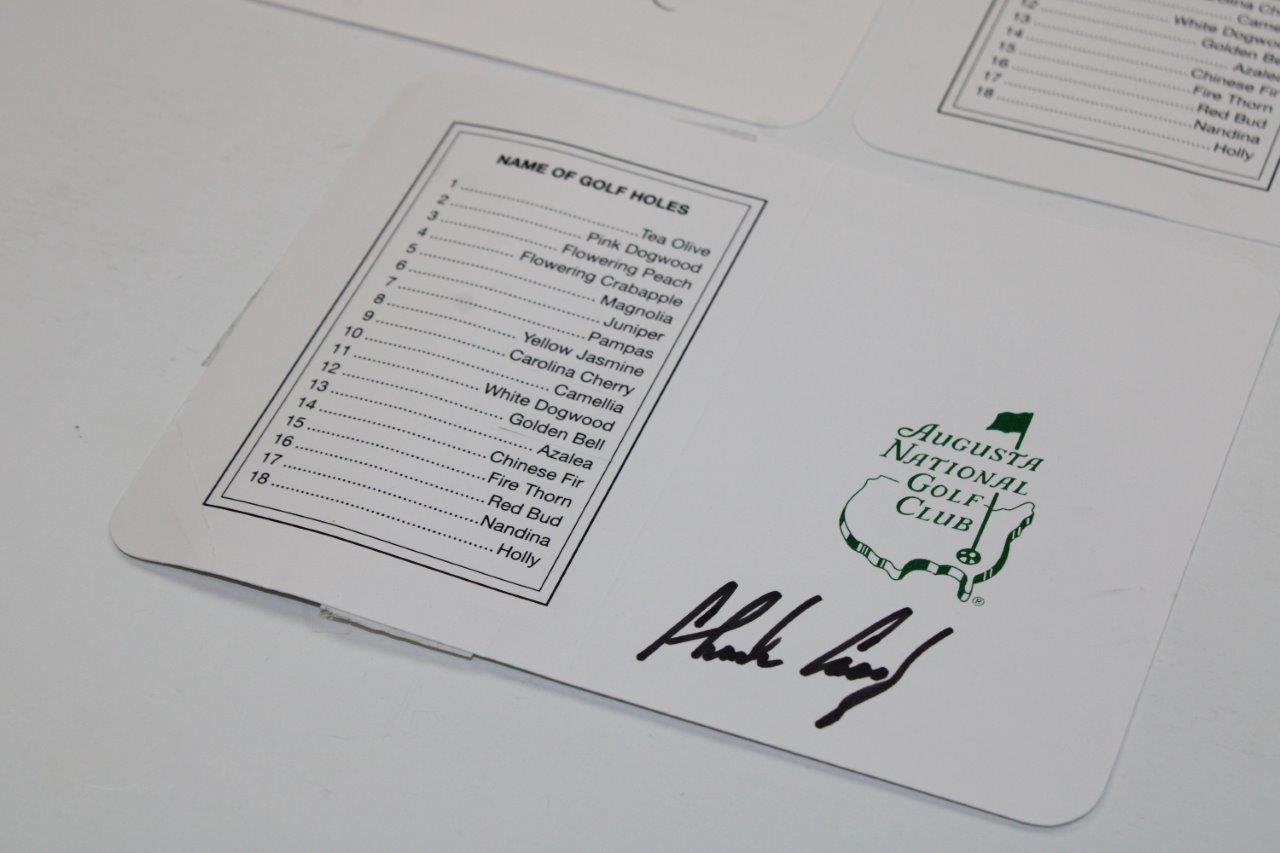 NAME OF GOLF HOLES
1 ........ Tea Olive
2 ........ Pink Dogwood
3 ........ Flowering Peach
4 ........ Flowering Crabapple
5 ........ Magnolia
6 ........ Juniper
7 ........ Pampas
8 ........ Yellow Jasmine
9 ........ Carolina Cherry
10 ........ Camellia
11 ........ White Dogwood
12 ........ Golden Bell
13 ........ Azalea
14 ........ Chinese Fir
15 ........ Fire Thorn
16 ........ Red Bud
17 ........ Nandina
18 ........ Holly
AUGUSTA
NATIONAL
GOLF
CLUB
®
12
13 ........ White
14 ........ Golden
15
16 ........ Chinese Fir
17 ........ Fire Thorn
18 ........ Red Bud
Nandina
Holly